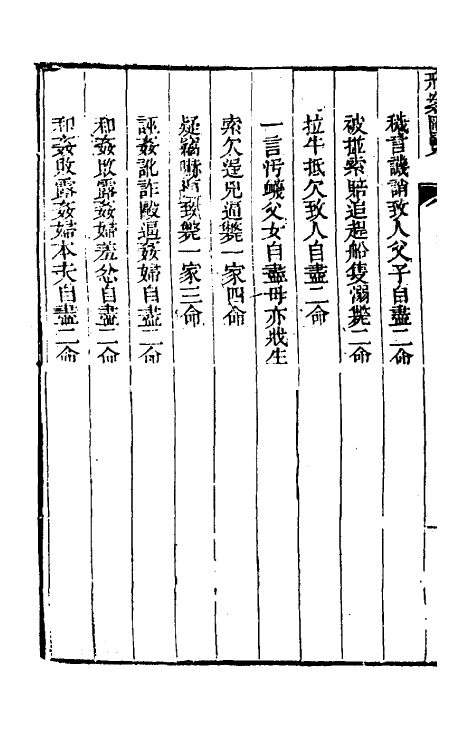 刑案匯覽
穢言譏誚致人父子自盡二命
被搕索賠追趕船隻溺斃二命
拉牛抵欠致人自盡二命
一言污衊父女自盡母亦戕生
索欠逞兇逼斃一家四命
疑竊嚇逼致斃一家三命
誣姦訛詐毆逼姦婦自盡二命
和姦敗露姦婦羞忿自盡二命
和姦敗露姦婦本夫自盡二命